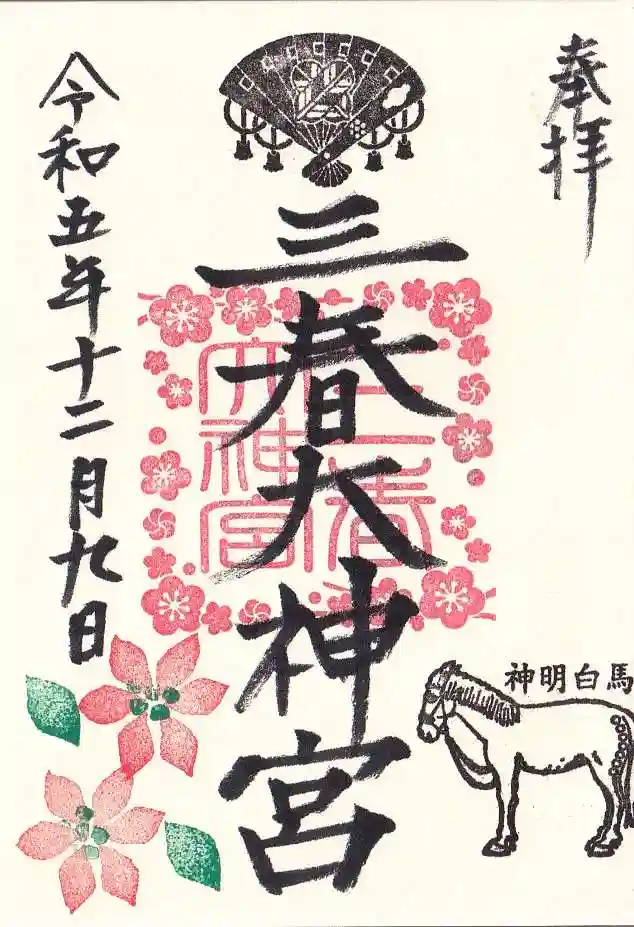 奉拝
三春大神宮
三春
大神宮
神明白馬
令和五年十二月九日